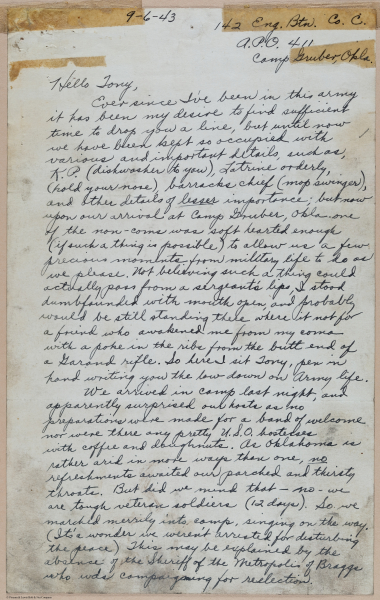 9-6-43
142 Eng. Btn. Co. C.
A.P.O. 411
Camp Gruber, Opla.
Hello Tony,
Ever since I've been in this army
it has been my desire to find sufficient
time to drop you a line, but until now
we have been kept so occupied with
various and important details, such as,
K.P. (dishwasher to you), Latrine orderly,
(hold your nose), barracks chief (mop swinger),
and other details of lesser importance; but now
upon our arrival at Camp Gruber, Opla. one
of the non-coms was soft hearted enough
(if such a thing is possible) to allow us a few
precious moments from military life to do as
we please. Not believing such a thing could
actually pass from a sergeants lips I stood
dumbfounded with mouth open, and probably
would be still standing there where it not for
a friend who awakened me from my coma
with a poke in the ribs from the butt end of
a Garand rifle. So here I sit Tony, pen in
hand writing you the low down on Army life.
We arrived in camp last night, and
apparently surprised our hosts as no
preparations were made for a band of welcome
nor were there any pretty U.S.O. hostesses
with coffee and doughnuts. As Oklahoma is
rather arid in more ways than one, no
refreshments awaited our parched and thirsty
throats. But did we mind that - no - we
are tough veteran soldiers (12 days). So we
marched merrily into camp, singing on the way.
(It's a wonder we werent arrested for disturbing
the peace) This may be explained by the
absence of the Sheriff of the Metropolis of Braggs
who was campaigning for reelection.